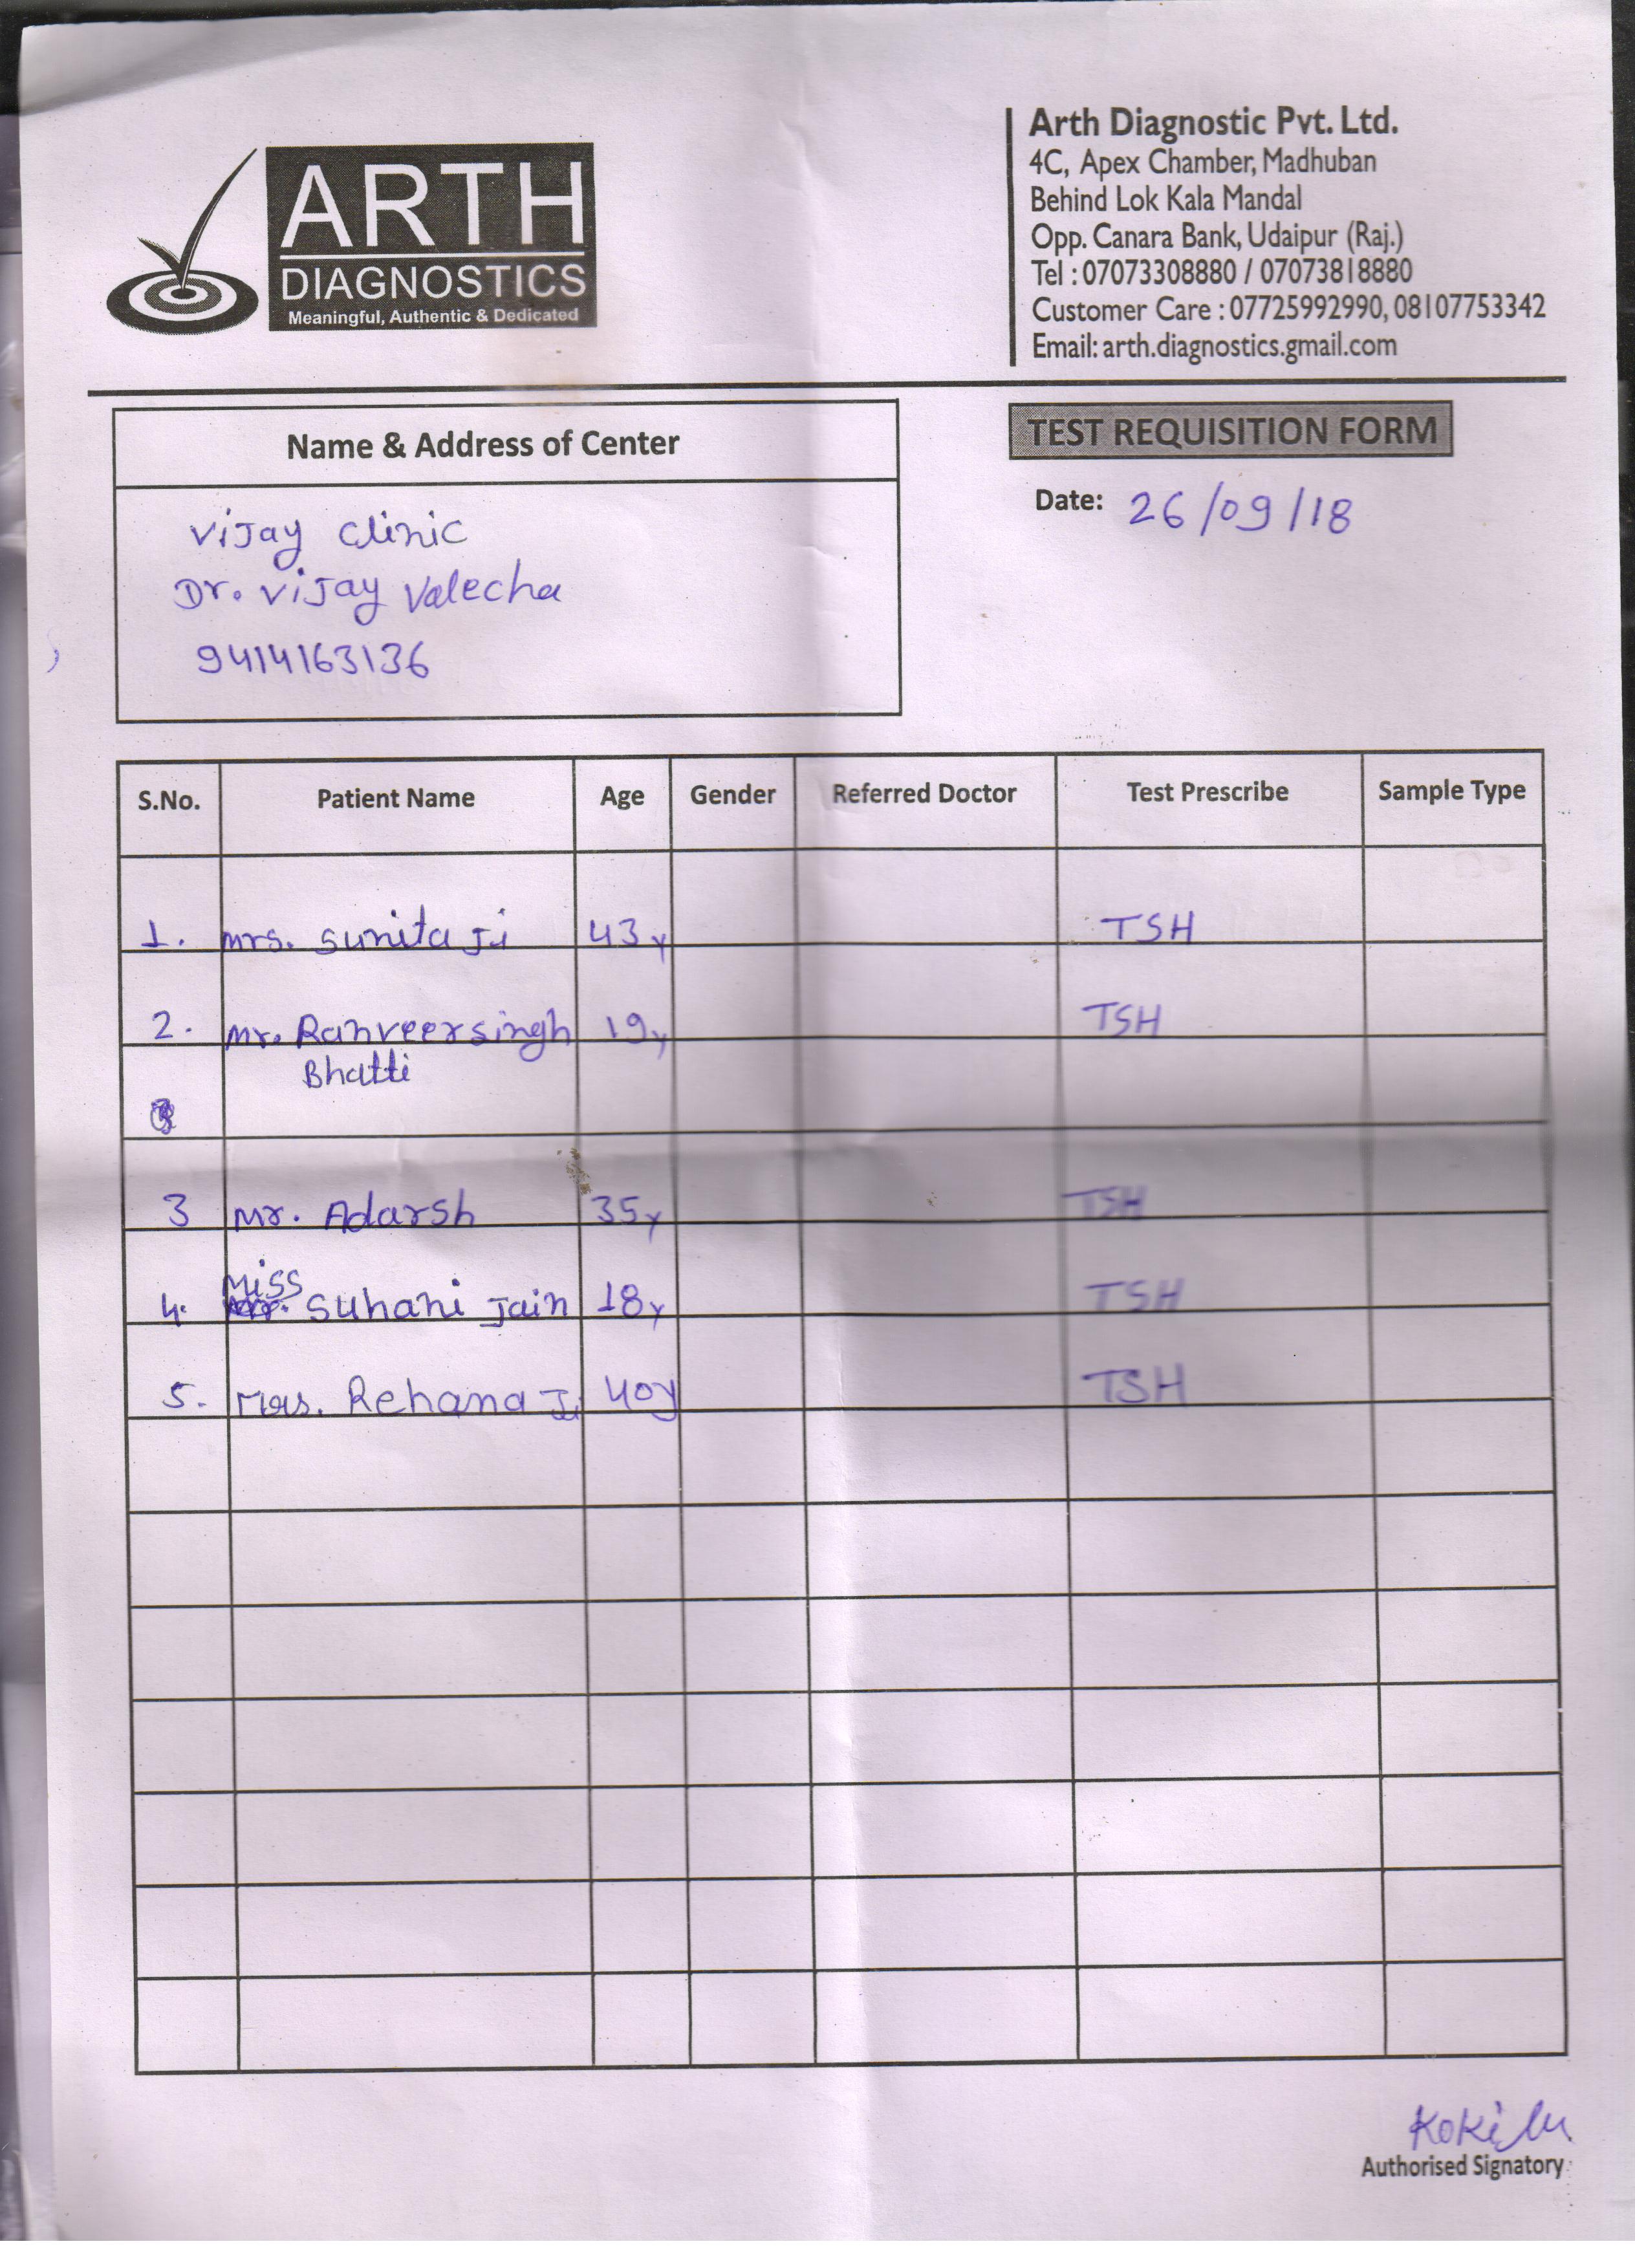 ARTH
DIAGNOSTICS
Meaningful, Authentic & Dedicated
Arth Diagnostic Pvt. Ltd.
4C, Apex Chamber, Madhuban
Behind Lok Kala Mandal
Opp. Canara Bank, Udaipur (Raj.)
Tel : 07073308880 / 07073818880
Customer Care : 07725992990, 08107753342
Email: arth.diagnostics.gmail.com
Name & Address of Center
Vijay Clinic
Dr. Vijay Valecha
9414163136
TEST REQUISITION FORM
Date: 26/09/18
S.No. Patient Name Age Gender Referred Doctor Test Prescribe Sample Type
1. Mrs. Sunita Ji 43y TSH
2. Mr. Ranveersingh 19y TSH
Bhatti
3 Mr. Adarsh 35y TSH
4. Miss Suhani Jain 18y TSH
5. Mrs. Rehana Ji 40y TSH
Authorised Signatory